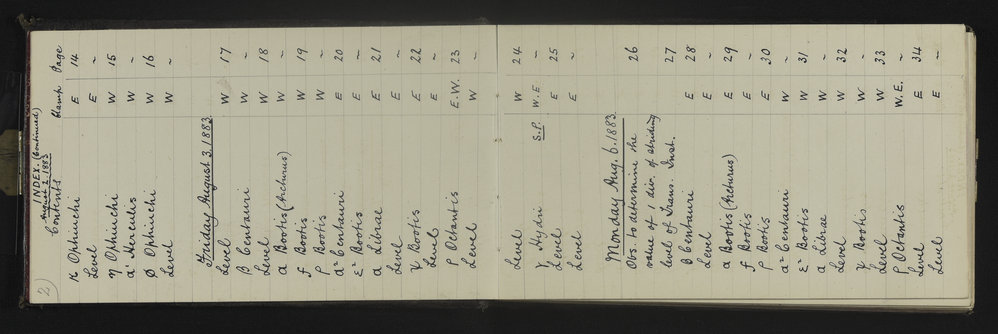 2)
INDEX. (Continued)
August 2. 1883
Contents Clamp Page
κ Ophiuchi E 14
Level E ~
η Ophiuchi W 15
α² Herculis W ~
φ Ophiuchi W 16
Level W ~
Friday August 3. 1883
Level W 17
β Centauri W ~
Level W 18
α Bootis (Arcturus) W ~
f Bootis W 19
ρ Bootis W ~
α² Centauri E 20
ε² Bootis E ~
α Librae E 21
Level E ~
Bootis E 22
Level E ~
ρ Octantis E.W. 23
Level W ~
Level W 24
γ Hydri S.P. W.E. ~
Level E 25
Level E ~
Monday Aug. 6. 1883
Obs. to determine the 26
value of 1 div. of striding
level of Trans. Inst. 27
β Centauri E 28
Level E ~
α Bootis (Arcturus) E 29
f Bootis E ~
ρ Bootis E 30
α² Centauri W ~
ε² Bootis W 31
α Librae W ~
Level W 32
Bootis W ~
Level W 33
ρ Octantis W.E. ~
Level E 34
Level E ~